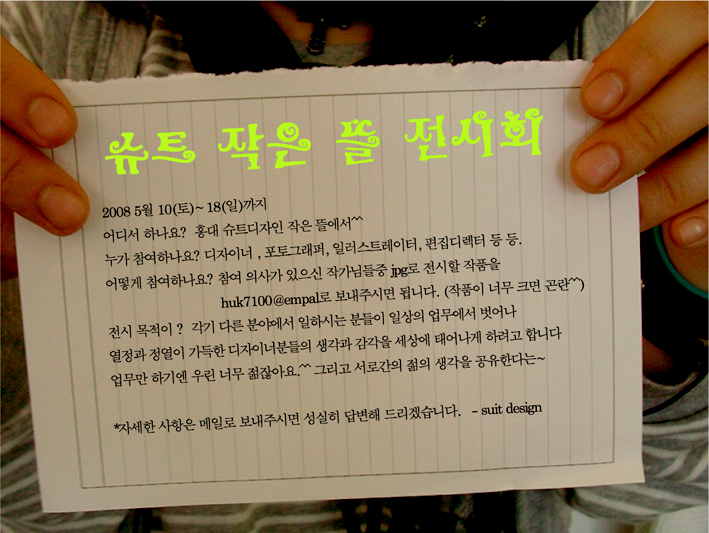 슈트 작은 뜰 전시회
2008 5월 10(토)~ 18(일)까지
어디서 하나요? 홍대 슈트디자인 작은 뜰에서^^
누가 참여하나요? 디자이너 , 포토그래퍼, 일러스트레이터, 편집디렉터 등 등.
어떻게 참여하나요? 참여 의사가 있으신 작가님들중 jpg로 전시할 작품을
huk7100@empal로 보내주시면 됩니다. (작품이 너무 크면 곤란^^)
전시 목적이 ? 각기 다른 분야에서 일하시는 분들이 일상의 업무에서 벗어나
열정과 정열이 가득한 디자이너분들의 생각과 감각을 세상에 태어나게 하려고 합니다
업무만 하기엔 우린 너무 젊잖아요.^^ 그리고 서로간의 젊의 생각을 공유한다는~
*자세한 사항은 메일로 보내주시면 성실히 답변해 드리겠습니다. - suit design